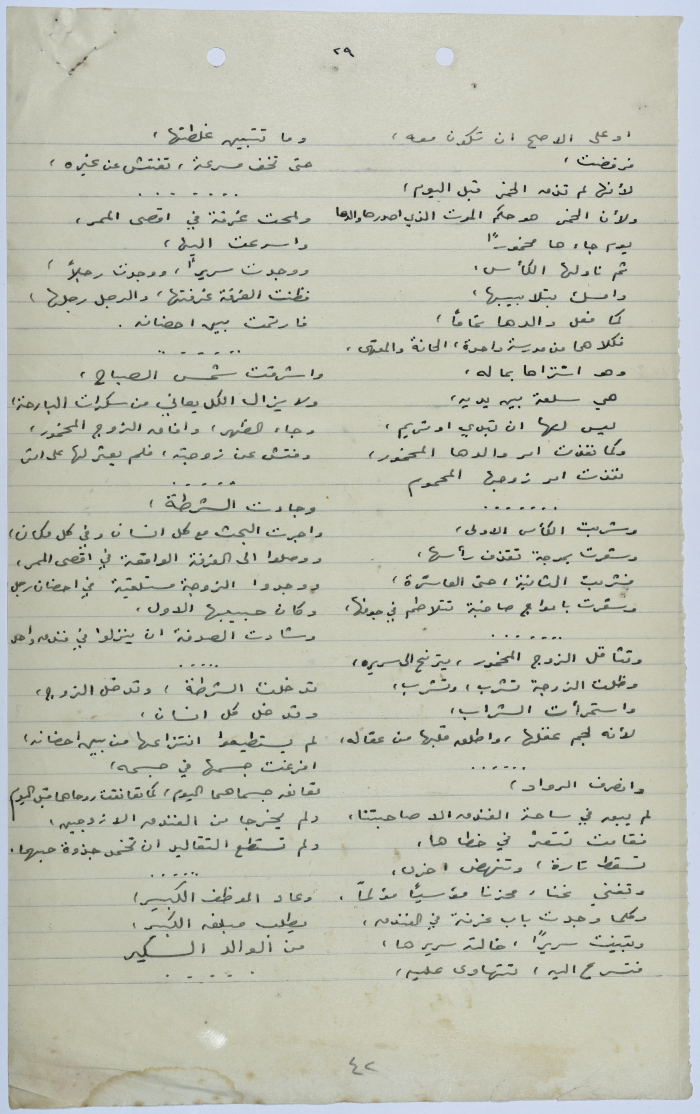 ٢٩
او على الاصح ان تكون معه،
فرفضت،
لأنها لم تذق الخمر قبل اليوم،
ولأن الخمر هو حكم الموت الذي اصدره والدها
يوم جاءها مخمورًا
ثم ناولها الكأس،
وامسك بتلابيبها،
كما فعل والدها تمامًا،
فكلاهما من مدرسة واحدة، الحانة والمقهى،
وهو اشتراها بماله،
هي سلعة بين يديه،
ليس لها ان تبدي او تريم،
وكما نفذت امر والدها المخمور،
نفذت امر زوجها المحموم
.......
وشربت الكأس الاولى،
وشعرت بموجة تقذف رأسها،
فشربت الثانية، حتى العاشرة،
وشعرت بامواج صاخبة تتلاطم في جوفها،
.......
وتثاقل الزوج المخمور، يترنح الى سريره،
وظلت الزوجة تشرب، وتشرب،
واستمرأت الشراب،
لأنه لجم عقلها، واطلق قلبها من عقاله،
......
وانصرف الرواد،
لم يبق في ساحة الفندق الا صاحبتنا،
فقامت تتعثر في خطاها،
تسقط تارة، وتنهض اخرى،
وتغني غناء محزنا مؤسيًا مؤلمًا،
وكلما وجدت باب غرفة في الفندق،
وتبينت سريرًا، خالته سريرها،
فتسرع اليه، تتهاوى عليه،
وما تتبين غلطتها،
حتى تخف مسرعة، تفتش عن غيره،
.......
ولمحت غرفة في اقصى الممر،
واسرعت اليها،
ووجدت سريرًا، ووجدت رجلاً،
فظنت الغرفة غرفتها، والرجل رجلها،
فارتمت بين احضانه.
......
واشرقت شمس الصباح،
ولا يزال الكل يعاني من سكرات البارحة،
وجاء الظهر، وافاق الزوج المخمور،
وفتش عن زوجته، فلم يعثر لها على اثر
......
وجاءت الشرطة،
واجرت البحث مع كل انسان وفي كل مكان،
ووصلوا الى الغرفة الواقعة في اقصى الممر،
ووجدوا الزوجة مستلقية في احضان رجل
وكان حبيبها الاول،
وشاءت الصدفة ان ينزلوا في فندق واحد
.....
تدخلت الشرطة، وتدخل الزوج،
وتدخل كل انسان،
لم يستطيعوا انتزاعها من بين احضانه،
افرغت جسمها في جسمه،
تعانق جسماهما اليوم، كما تعانقت روحاهما قبل اليوم
ولم يخرجا من الفندق الا زوجين،
ولم تستطع التقاليد ان تخمد جذوة حبهما.
......
وعاد الموظف الكبير،
يطلب مبلغه الكبير،
من الوالد السكير
......
٤٢